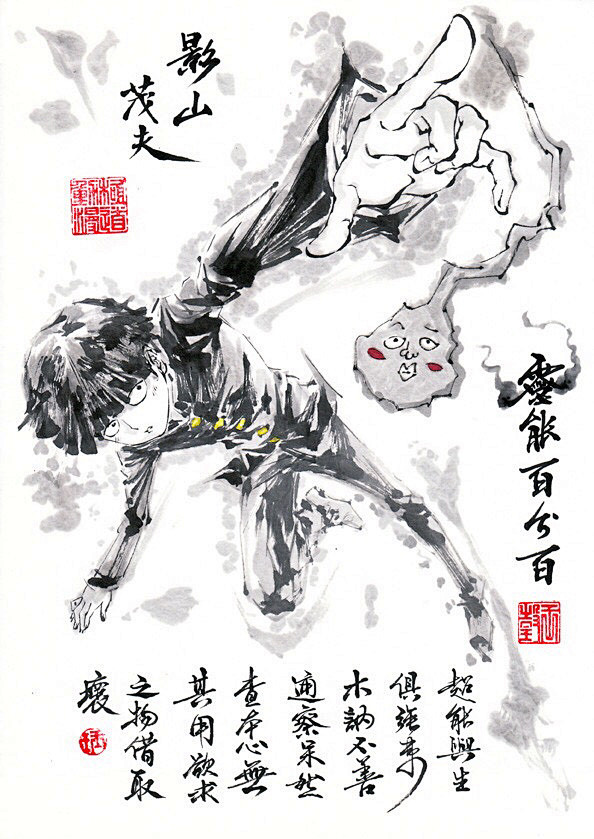 影山
茂夫
靈能百分百
超能與生
俱強
木訥不善
察呆然
查本心無
其用欲求
之物借取